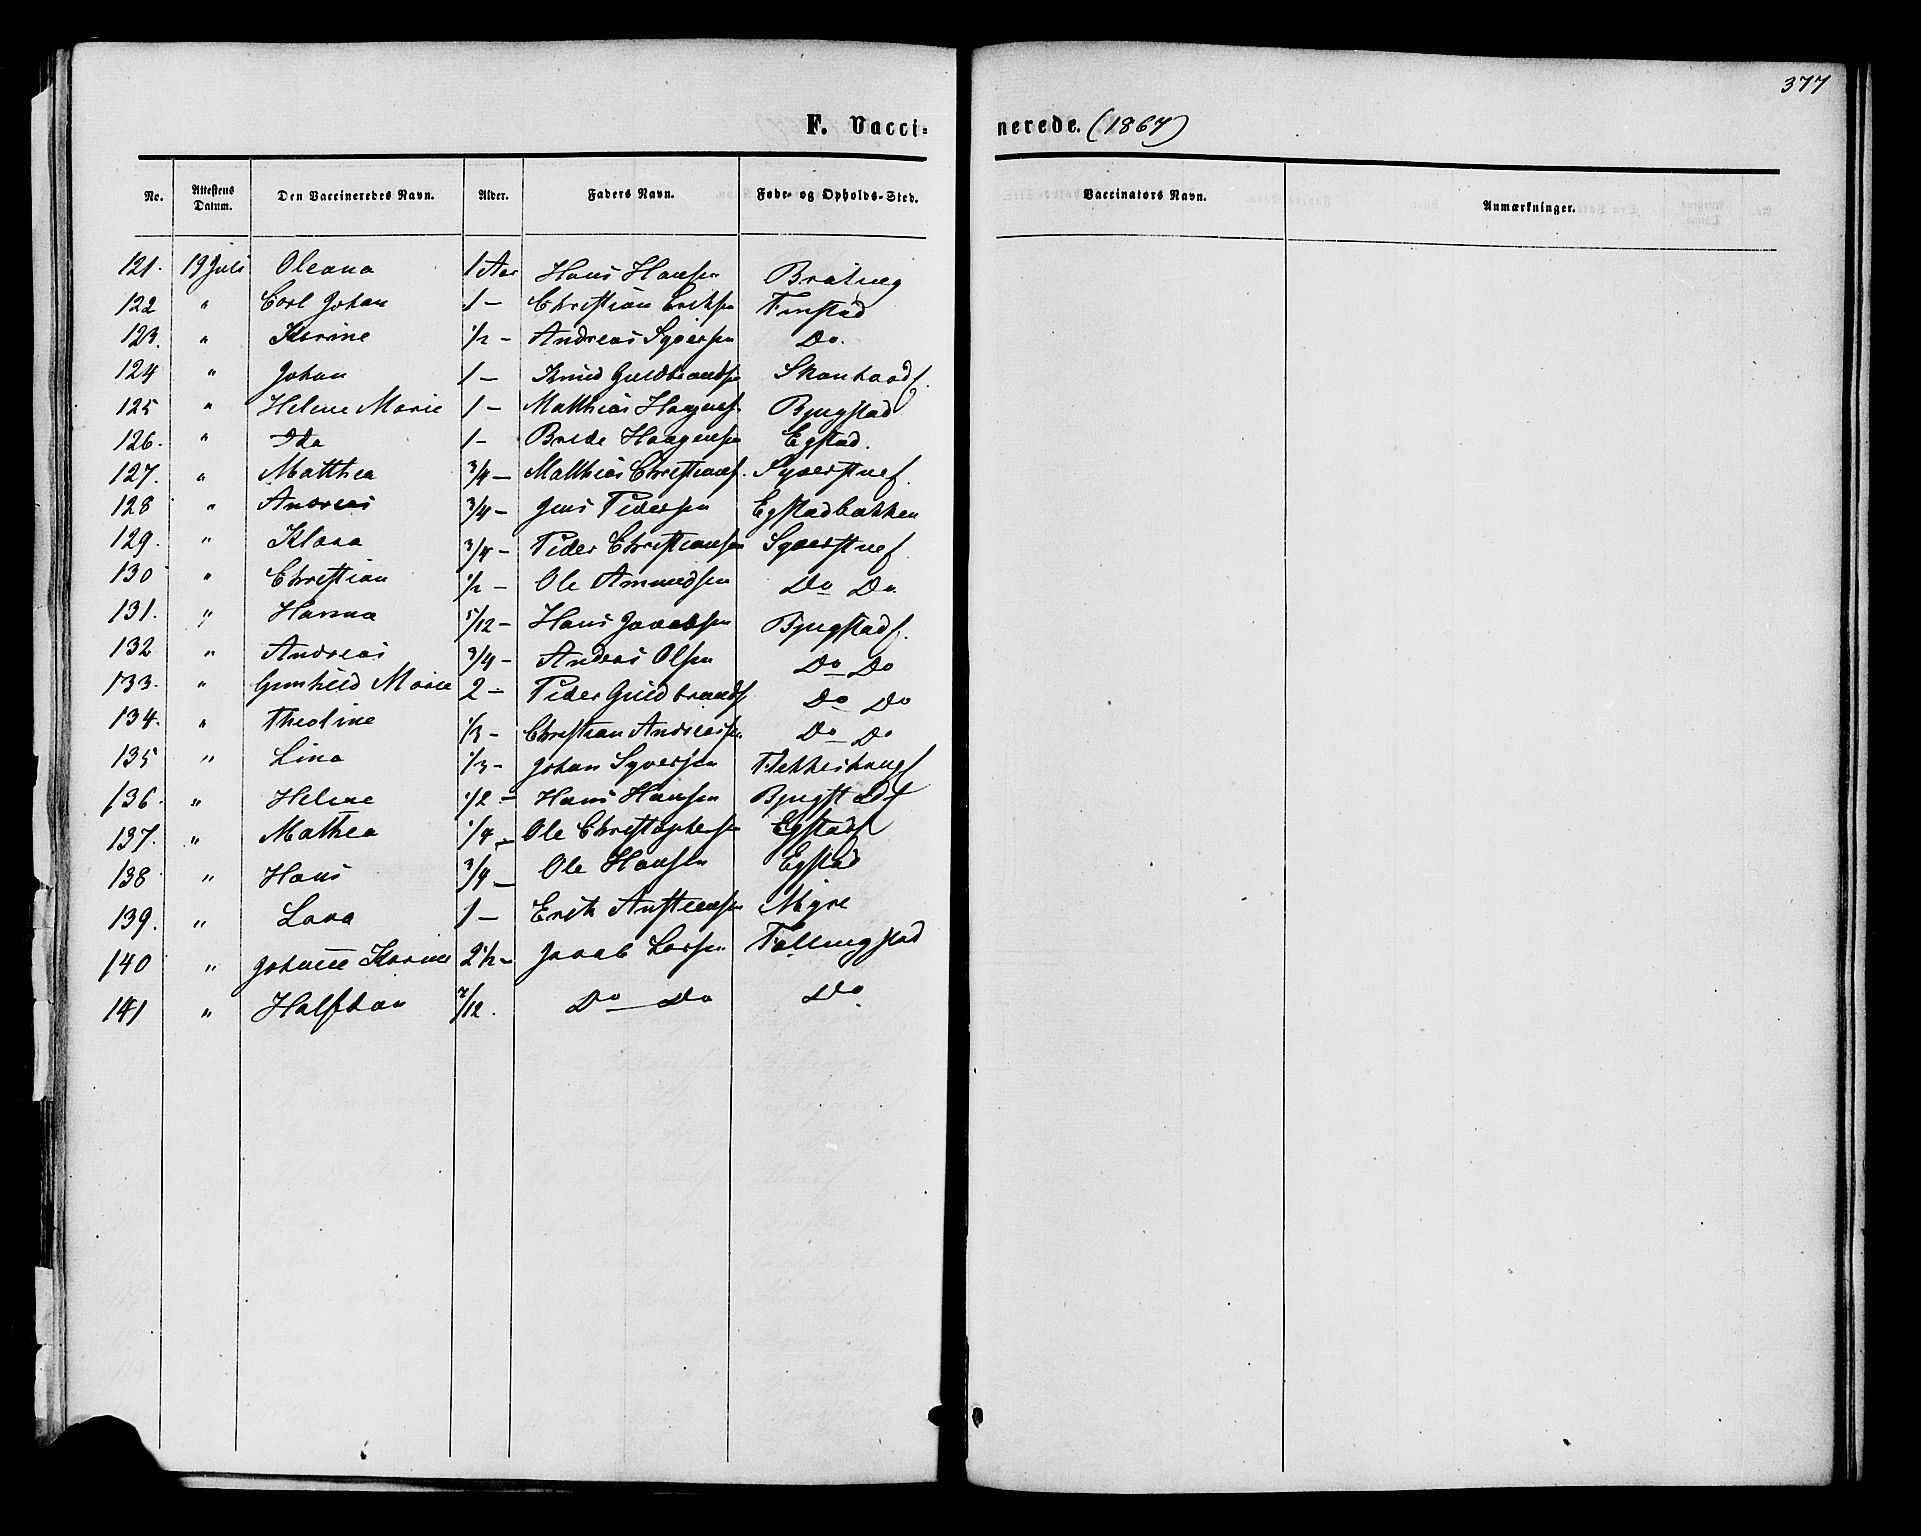 377
F. Vacci-
nerede. (1867)
No. Attestens Datum. Den Vaccineredes Navn. Alder. Faders Navn. Føde- og Opholds-Sted. Vaccinators Navn. Anmærkninger.
121. 19 Juli Oleana 1 Aar Hans Hansen
122 " Carl Johan 1 - Christian Eriksen Finstad
123. " Karine 1/2 - Andreas Syversen Do.
124 " Johan 1 - Knud Guldbrandsen
125 " Helene Marie 1 - Matthias Haagensf. Bjugstad
126. " Ida 1 - Brede Haagensen Egstad.
127. " Matthea 3/4 - Matthias Christiansf. Syverstuef.
128 " Andreas 3/4 - Jens Pedersen Egstadbakken
129. " Klara 3/4 - Peder Christiansen Syverstuef.
130 " Christian 1/2 - Ole Amundsen Do Do
131. " Hanna 5/12 - Hans Jacobsen Bjugstadf.
132 " Andreas 3/4 - Andreas Olsen Do Do
133. " Gunhild Marie 2 - Peder Guldbrandsf. Do Do
134. " Theoline 1/3 - Christian Andreassen Do Do
135 " Lina 1/3 - Johan Syversen Flekkeshaugf
136. " Helene 1/2 - Hans Hansen Bjugstadf
137. " Mathea 1/4 - Ole Christophersen Egstadf
138 " Hans 3/4 - Ole Hansen Egstad
139. " Lava 1 - Erik Anstensen Myre
140 " Johanne Karine 2 1/2 - Jacob LarsenFøllingstad
141 " Halfdan 7/12. Do Do Do